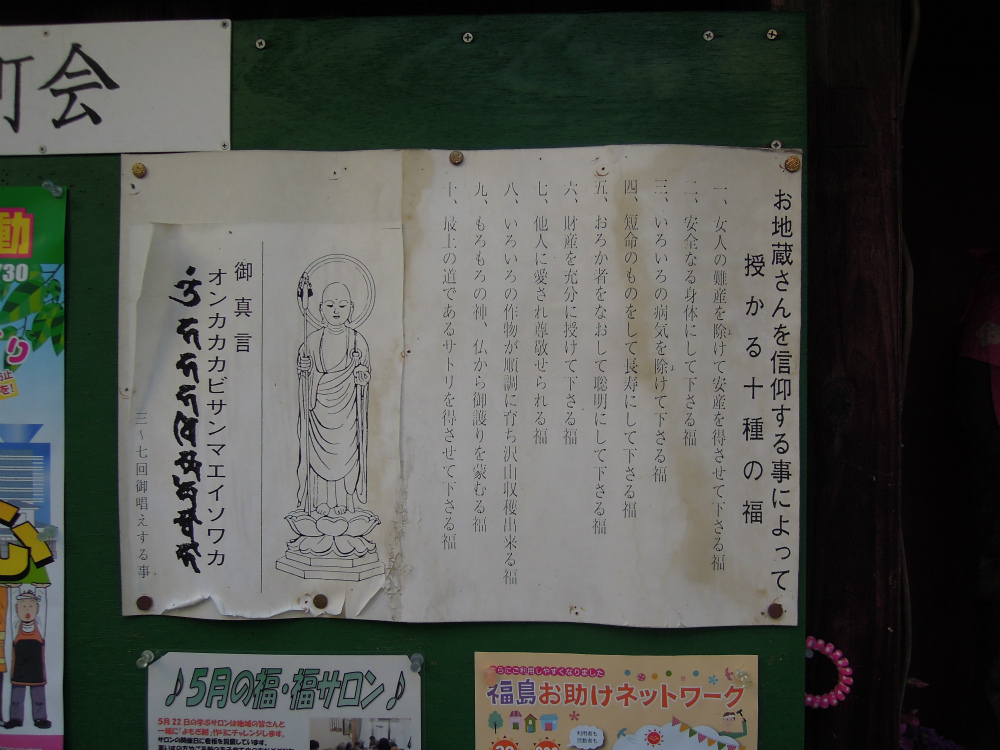 町会
お地蔵さんを信仰する事によって
授かる十種の福
一、女人の難産を除けて安産を得させて下さる福
二、安全なる身体にして下さる福
三、いろいろの病気を除けて下さる福
四、短命のものをして長寿にして下さる福
五、おろか者をなおして聡明にして下さる福
六、財産を充分に授けて下さる福
七、他人に愛され尊敬せられる福
八、いろいろの作物が順調に育ち沢山収穫出来る福
九、もろもろの神、仏から御護りを蒙むる福
十、最上の道であるサトリを得させて下さる福
御真言
オンカカカビサンマエイソワカ
三〜七回御唱えする事
動
/30
♪5月の福・福サロン♪
5月22日の学ぶサロンは地域の皆さんと
一緒に「よもぎ餅」作りにチャレンジします。
サロンの開催日に看板を設置しています。
さらにご利用しやすくなりました
福島お助けネットワーク
利用者も
活動者も